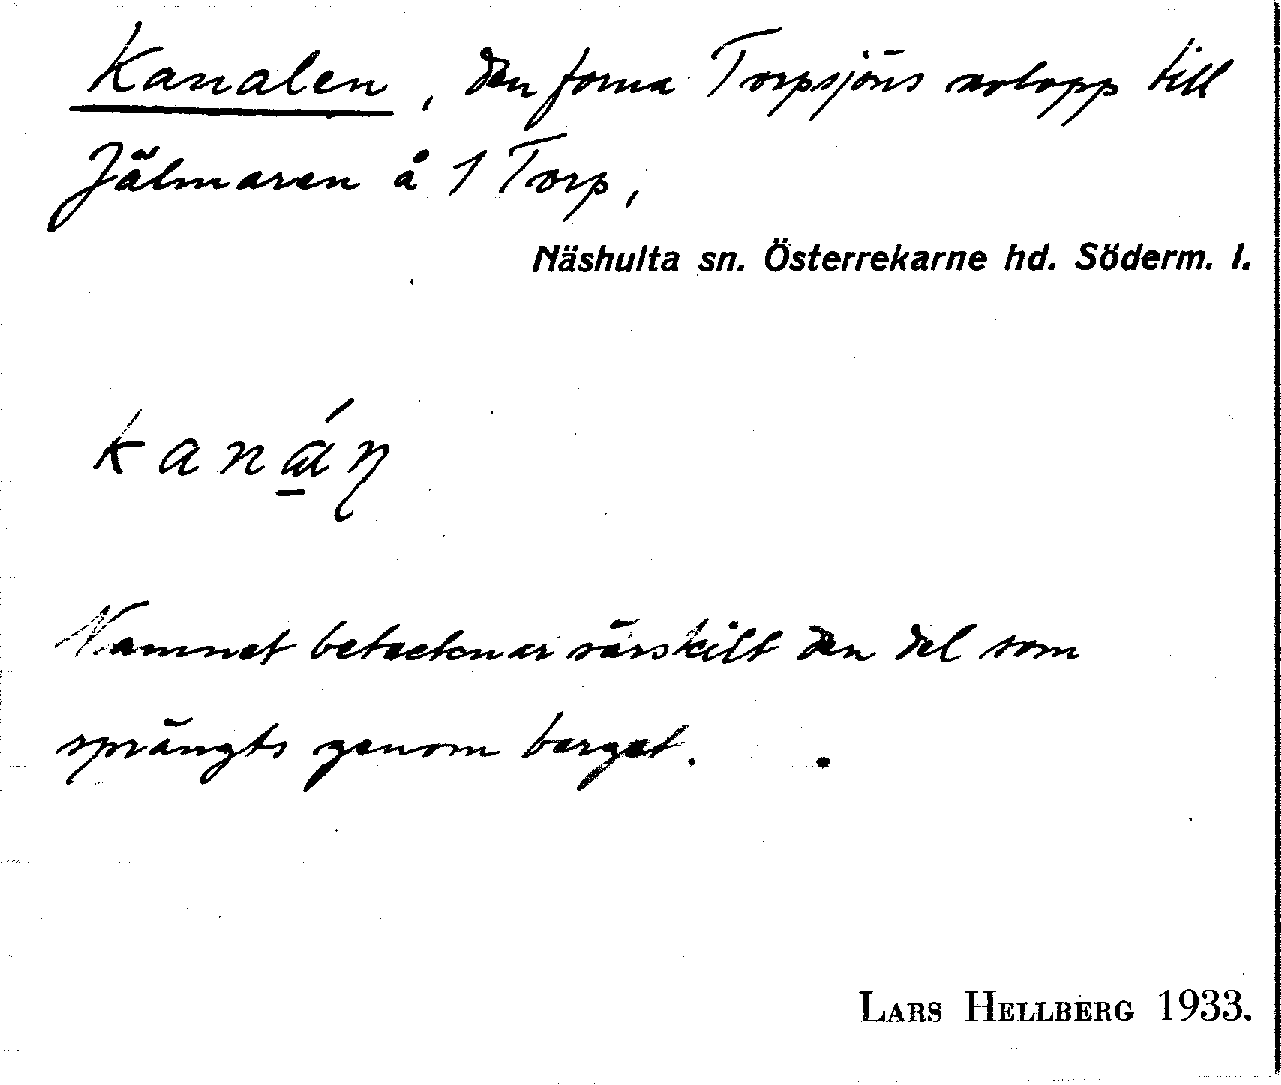 Kanalen, den forna Torpsjöns avlopp till
Jälmaren å 1 Torp,
Näshulta sn. Österrekarne hd. Söderm. l.
kanáṉ
Namnet betecknar särskilt den del som
sprängts genom berget.
LARS HELLBERG 1933.